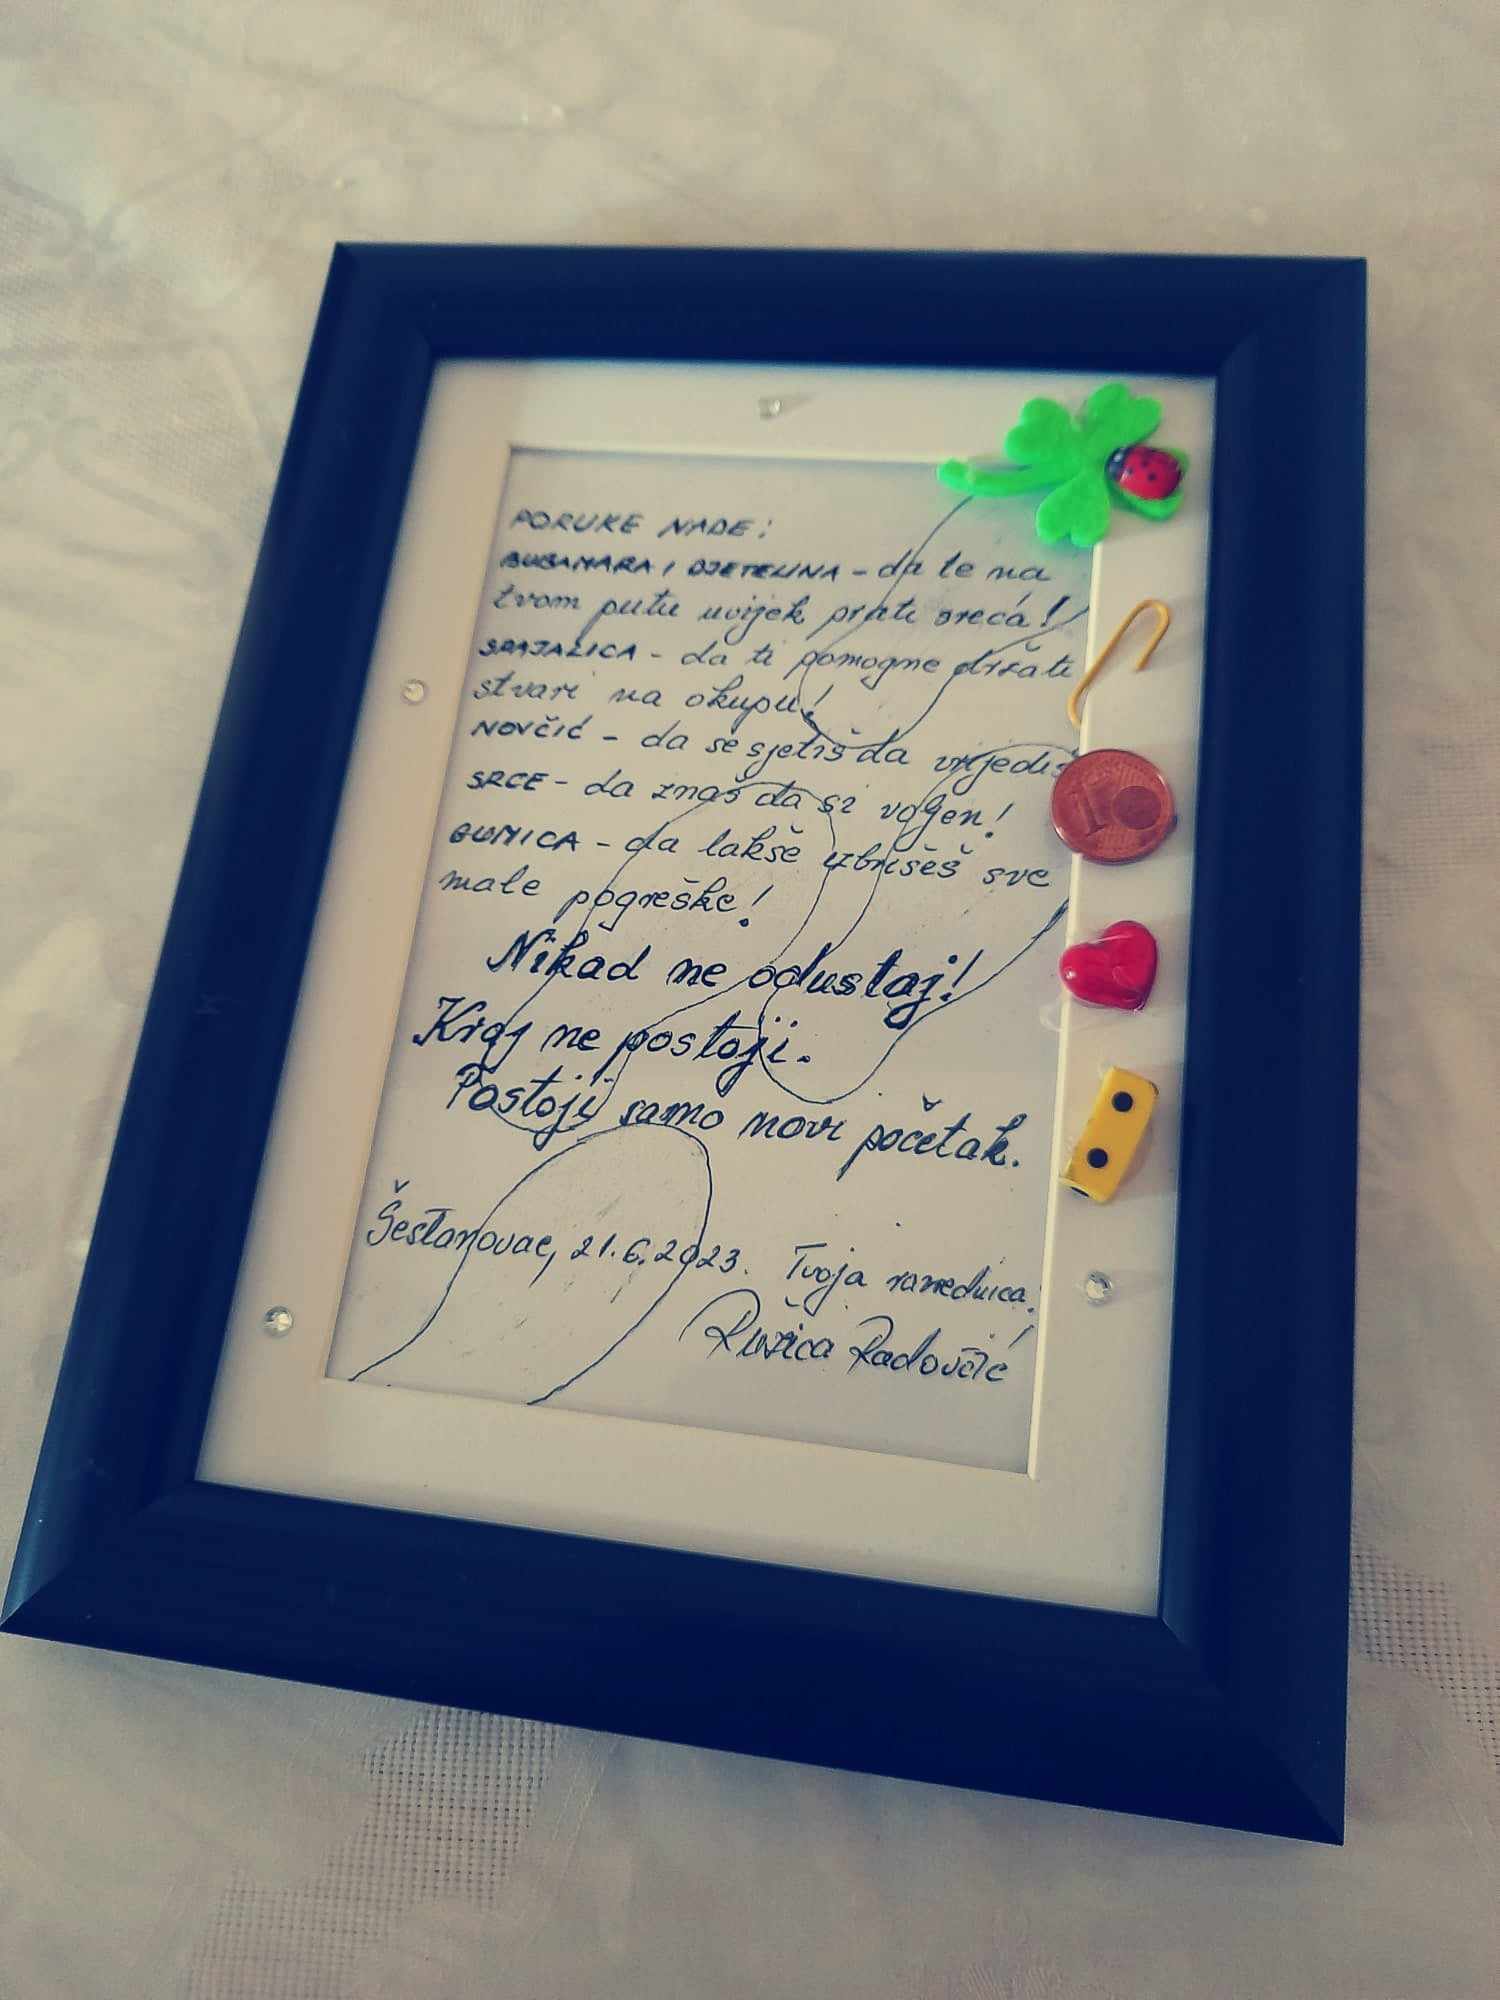 PORUKE NADE:
BUBAMARA I DJETELINA - da te na
tvom putu uvijek prati sreća!
SPAJALICA - da ti pomogne držati
stvari na okupu!
NOVČIĆ - da se sjetiš da vrijediš
SRCE - da znaš da si voljen!
GUMICA - da lakše izbrišeš sve
male pogreške!
Nikad ne odustaj!
Kraj ne postoji.
Postoji samo novi početak.
Šestanovac, 21.6.2023. Tvoja razrednica:
Ružica Radovčić
1